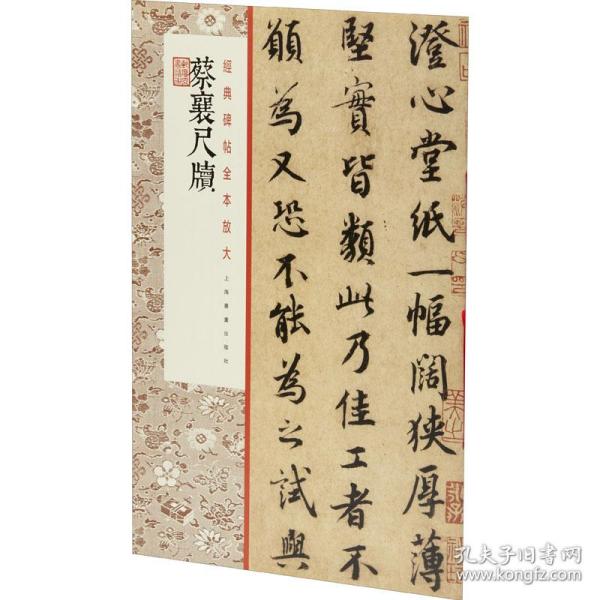 澄心堂紙一幅闊狹厚薄
堅實皆類此乃佳工者不
願為又恐不能為之試與
經典碑帖全本放大
蔡襄尺牘
上海書畫出版社
孔夫子旧书网
www.kongfz.com